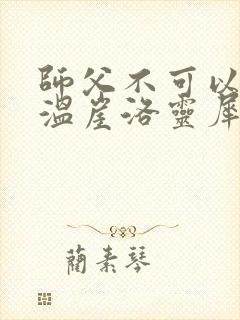 師父不可以
溫崖洛靈犀
蘭素琴